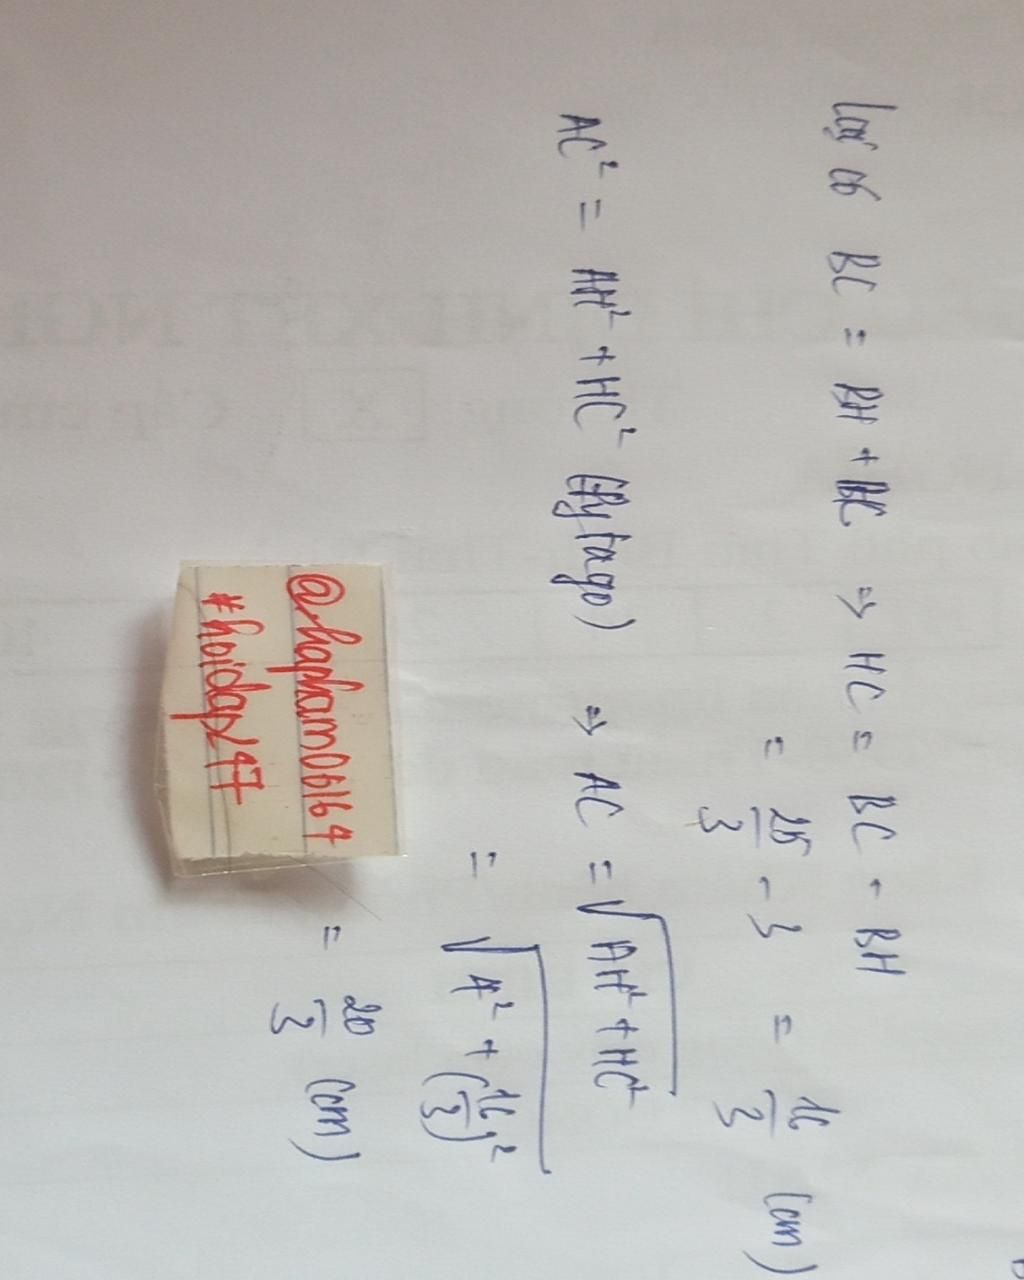 Lại có BC = BH + HC ⇒ HC = BC - BH
= 25/3 - 3 = 16/3 (cm)
AC² = AH² + HC² (Pytago) ⇒ AC = √(AH² + HC²)
= √(4² + (16/3)²)
= 20/3 (cm)
@rhapham06164
#hoidap247